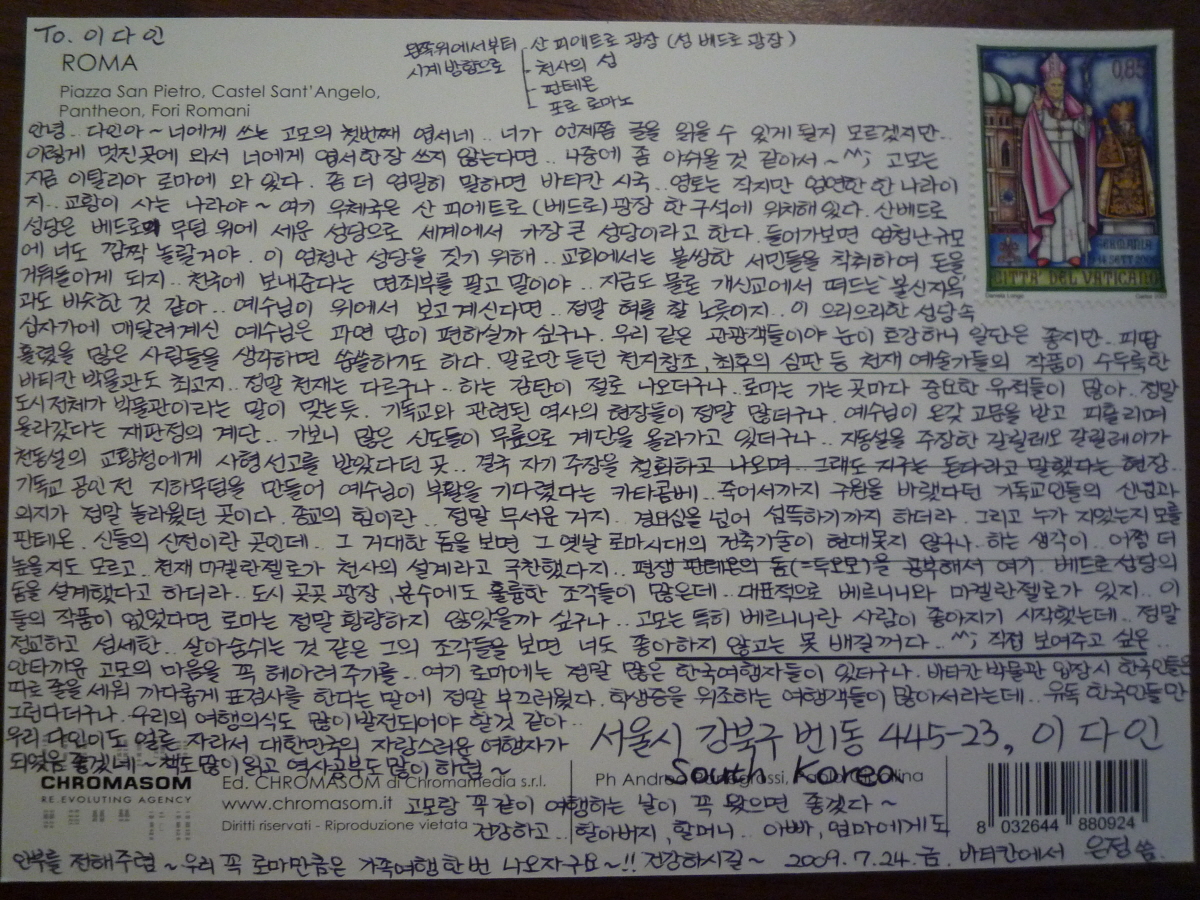 To. 이다인
ROMA
Piazza San Pietro, Castel Sant'Angelo,
Pantheon, Fori Romani
왼쪽위에서부터 시계방향으로
산 피에트로 광장 (성 베드로 광장)
천사의 성
판테온
포로 로마노
0,85
GERMANIA
CITTA' DEL VATICANO
안녕.. 다인아~ 너에게 쓰는 고모의 첫번째 엽서네.. 너가 언제쯤 글을 읽을 수 있게 될지 모르겠지만..
이렇게 멋진곳에 와서 너에게 엽서한장 쓰지 않는다면.. 나중에 좀 아쉬울 것 같아서~^^; 고모는
지금 이탈리아 로마에 와 있다. 좀 더 엄밀히 말하면 바티칸 시국.. 영토는 작지만 엄연한 한 나라이
지.. 교황이 사는 나라야~ 여기 우체국은 산 피에트로(베드로)광장 한 구석에 위치해있다. 산베드로
성당은 베드로의 무덤 위에 세운 성당으로 세계에서 가장 큰 성당이라고 한다. 들어가보면 엄청난규모
에 너도 깜짝 놀랄거야. 이 엄청난 성당을 짓기 위해.. 교회에서는 불쌍한 서민들을 착취하여 돈을
거둬들이게 되지. 천국에 보내준다는 면죄부를 팔고 말이야.. 지금도 물론 개신교에서 떠드는 불신지옥
과도 비슷한 것 같아.. 예수님이 위에서 보고계신다면.. 정말 혀를 찰 노릇이지.. 이 으리으리한 성당속
십자가에 매달려계신 예수님은 과연 맘이 편하실까 싶구나. 우리 같은 관광객들이야 눈이 호강하니 일단은 좋지만. 피땀
흘렸을 많은 사람들을 생각하면 씁쓸하기도 하다. 말로만 듣던 천지창조, 최후의 심판 등 천재 예술가들의 작품이 수두룩한
바티칸 박물관도 최고지.. 정말 천재는 다르구나.. 하는 감탄이 절로 나오더구나. 로마는 가는 곳마다 중요한 유적들이 많아. 정말
도시전체가 박물관이라는 말이 맞는듯. 기독교와 관련된 역사의 현장들이 정말 많더구나. 예수님이 온갖 고문을 받고 피흘리며
올라갔다는 재판정의 계단.. 가보니 많은 신도들이 무릎으로 계단을 올라가고 있더구나.. 지동설을 주장한 갈릴레오 갈릴레이가
천동설의 교황청에게 사형선고를 받았다던 곳.. 결국 자기 주장을 철회하고 나오며.. 그래도 지구는 돈다라고 말했다는 현장..
기독교 공인 전 지하무덤을 만들어 예수님이 부활을 기다렸다는 카타콤베.. 죽어서까지 구원을 바랬다던 기독교인들의 신념과
의지가 정말 놀라웠던 곳이다. 종교의 힘이란.. 정말 무서운 거지. 경외심을 넘어 섬뜩하기까지 하더라. 그리고 누가 지었는지 모를
판테온. 신들의 신전이란 곳인데.. 그 거대한 돔을 보면 그 옛날 로마시대의 건축기술이 현대못지 않구나.. 하는 생각이.. 어쩜 더
높을지도 모르고.. 천재 미켈란젤로가 천사의 설계라고 극찬했다지.. 평생 판테온의 돔(=두오모)을 공부해서 여기. 베드로 성당의
돔을 설계했다고 하더라.. 도시 곳곳 광장, 분수에도 훌륭한 조각들이 많은데.. 대표적으로 베르니니와 미켈란젤로가 있지.. 이
들의 작품이 없었다면 로마는 정말 황량하지 않았을까 싶구나.. 고모는 특히 베르니니란 사람이 좋아지기 시작했는데.. 정말
정교하고 섬세한.. 살아숨쉬는 것 같은 그의 조각들을 보면 너도 좋아하지 않고는 못 배길꺼다..^^; 직접 보여주고 싶은..
안타까운 고모의 마음을 꼭 헤아려주기를.. 여기 로마에는 정말 많은 한국여행자들이 있더구나. 바티칸 박물관 입장시 한국인들은
따로 줄을 세워 까다롭게 표검사를 한다는 말에 정말 부끄러웠다. 학생증을 위조하는 여행객들이 많아서라는데.. 유독 한국인들만
그런다더구나. 우리의 여행의식도 많이 발전되어야 할것 같아..
우리 다인이도 얼른 자라서 대한민국의 자랑스러운 여행자가
되었음 좋겠네~ 책도 많이 읽고 역사공부도 많이 하렴~
서울시 강북구 번1동 445-23, 이다인
South Korea
CHROMASOM
RE.EVOLUTING AGENCY
Ed. CHROMASOM di Chromamedia s.r.l.
www.chromasom.it
Diritti riservati - Riproduzione vietata
Ph Andrea
8 032644 880924
고모랑 꼭 같이 여행하는 날이 꼭 왔으면 좋겠다~
건강하고.. 할아버지, 할머니.. 아빠, 엄마에게도
안부를 전해주렴~ 우리 꼭 로마만큼은 가족여행 한번 나오자구요~!! 건강하시길~ 2009.7.24.금. 바티칸에서 은정 씀.